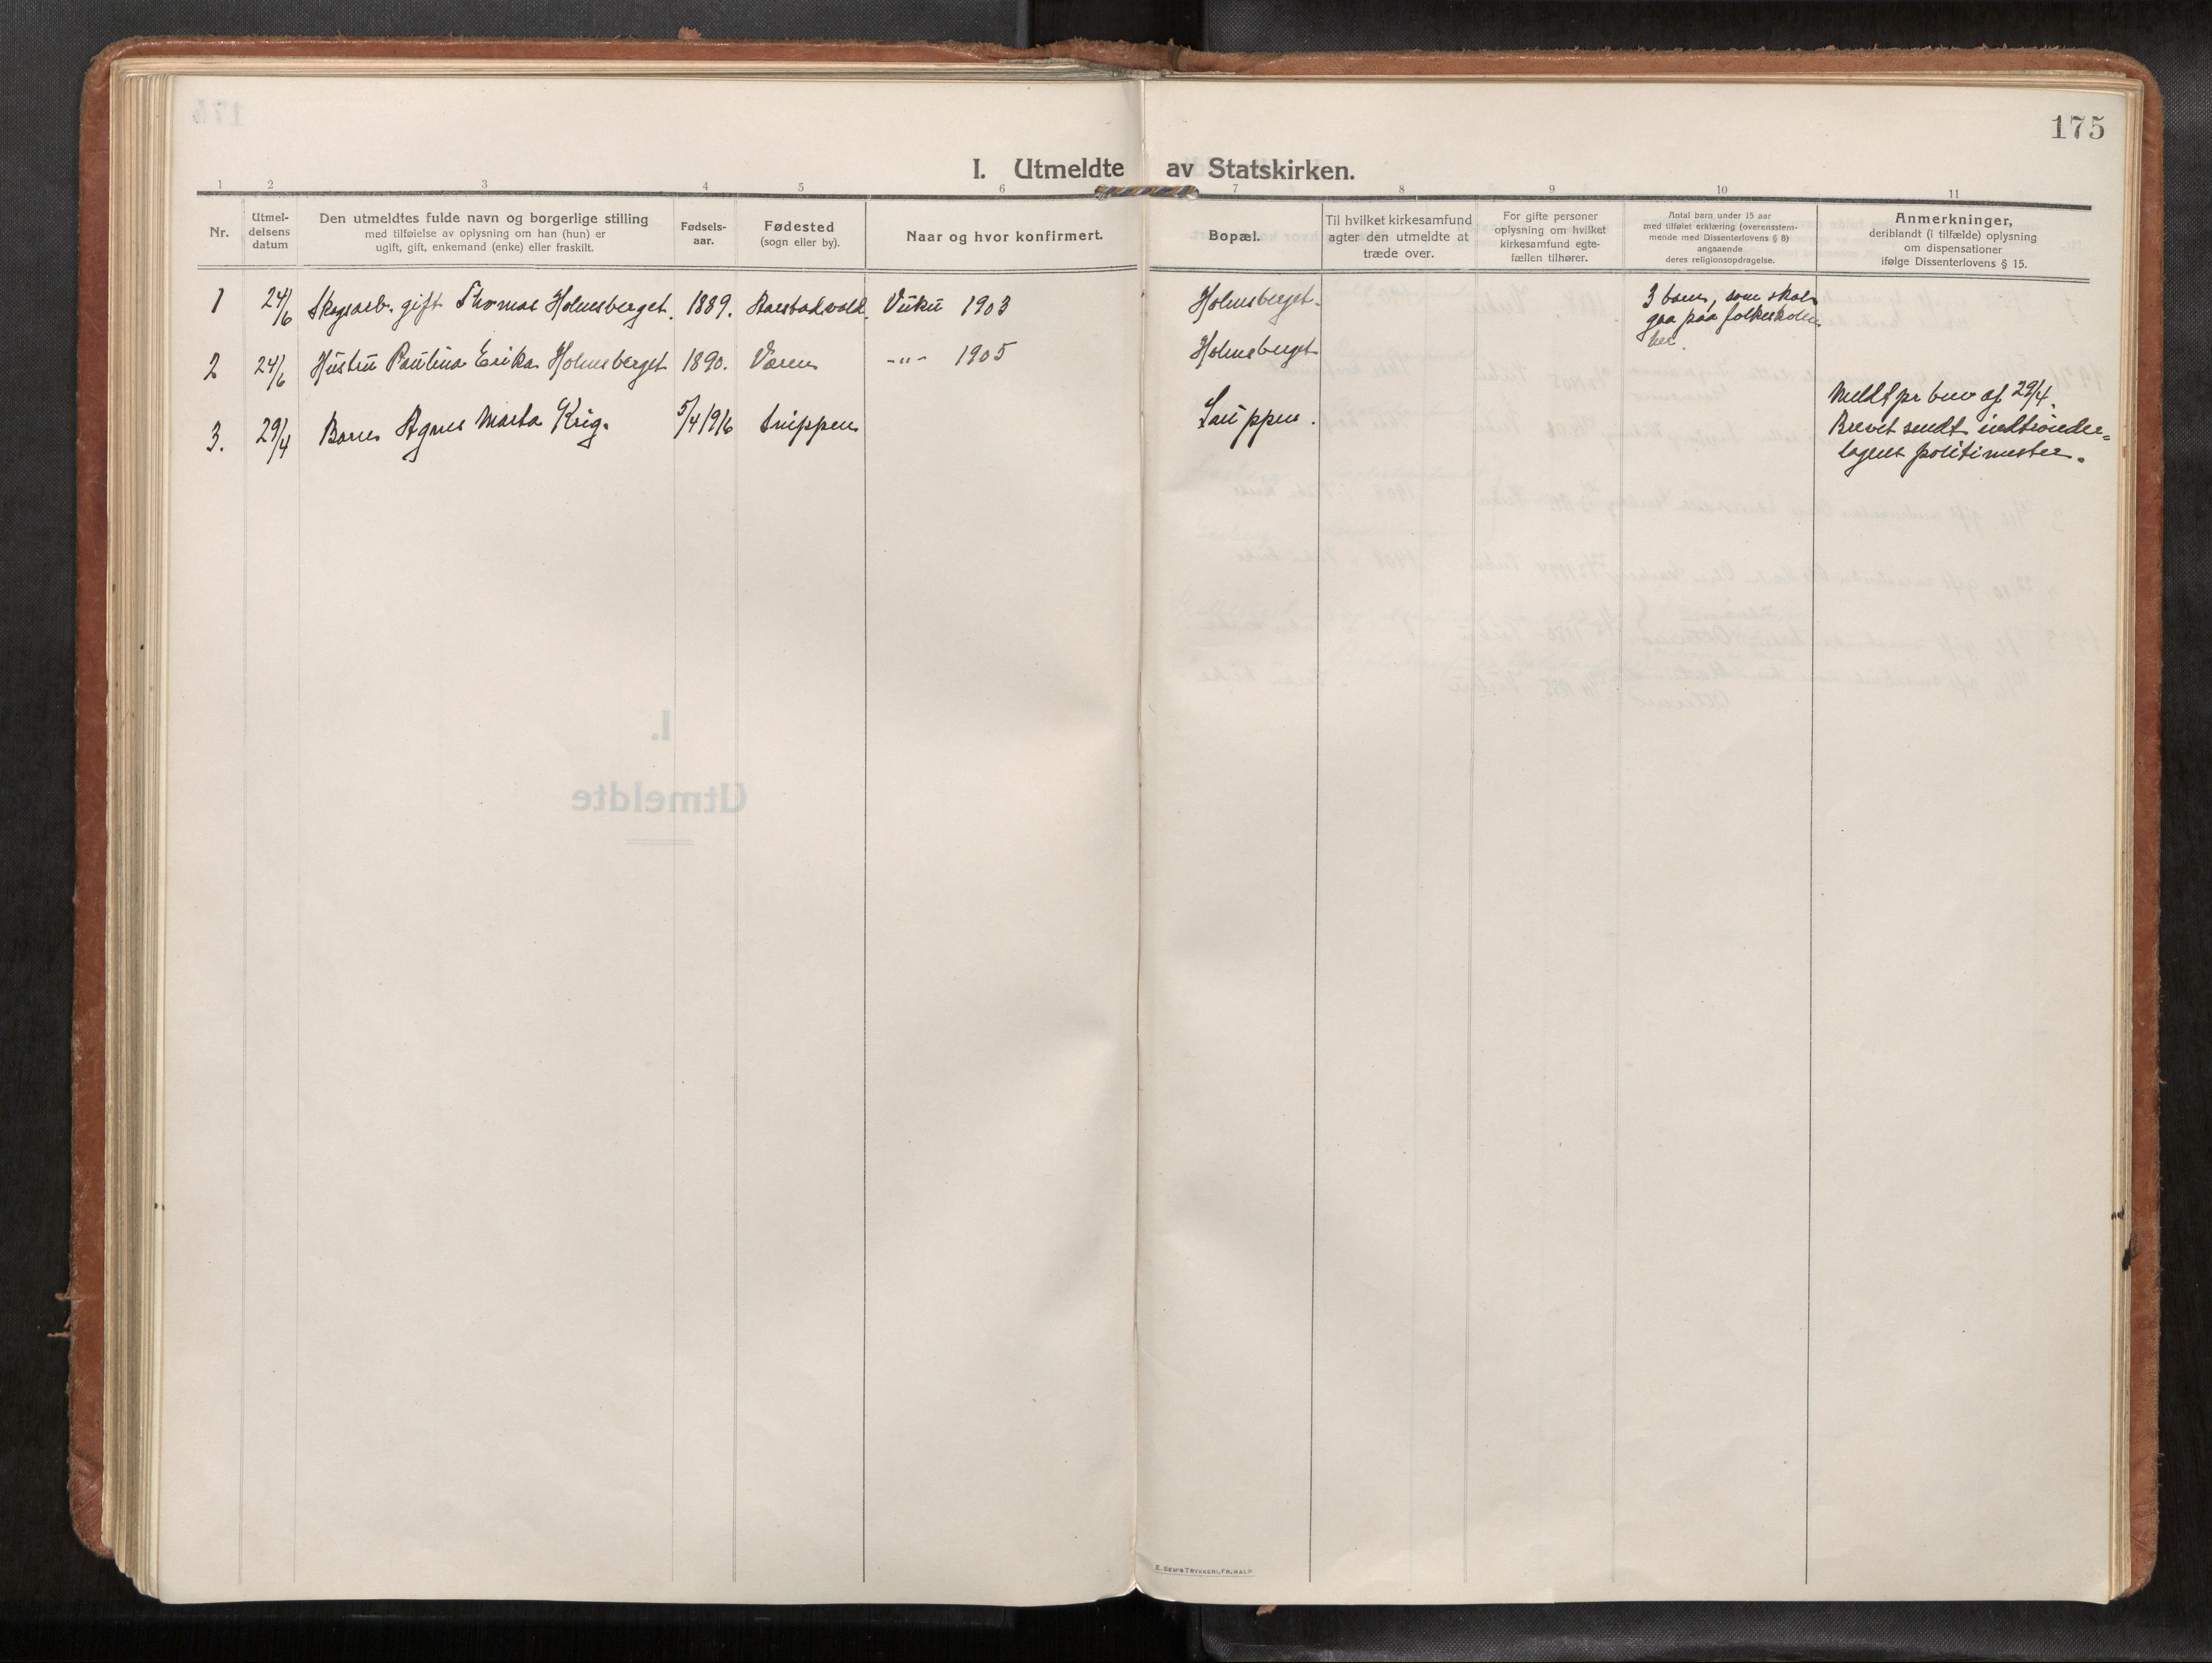 175
I. Utmeldte av Statskirken.
1 2 3 4 5 6 7 8 9 10 11
Nr.
Utmel-
delsens
datum
Den utmeldtes fulde navn og borgerlige stilling
med tilføielse av oplysning om han (hun) er
ugift, gift, enkemand (enke) eller fraskilt.
Fødsels-
aar.
Fødested
(sogn eller by).
Naar og hvor konfirmert.
Bopæl.
Til hvilket kirkesamfund
agter den utmeldte at
træde over.
For gifte personer
oplysning om hvilket
kirkesamfund egte-
fællen tilhører.
Antal barn under 15 aar
med tilføiet erklæring (overensstem-
mende med Dissenterlovens § 8)
angaaende
deres religionsopdragelse.
Anmerkninger,
deriblandt (i tilfælde) oplysning
om dispensationer
ifølge Dissenterlovens § 15.
1 24/6 Skogsarb. gift Thomas Holmsberget. 1889. Vuku 1903 Holmsberget.
3 barn, som skal
gaa paa folkeskolen
her.
2 24/6 Hustru Paulina Erika Holmsberget 1890. Væren -"- 1905 Holmsberget
3. 29/4 Barn Agnes Marta Krig. 5/4 1916 Snippen
Meldt pr brev af 29/4.
Brevet sendt indtrønder-
lagens politimester.
I.
Utmeldte
E. SEM'S TRYKKERI, FR.HALD